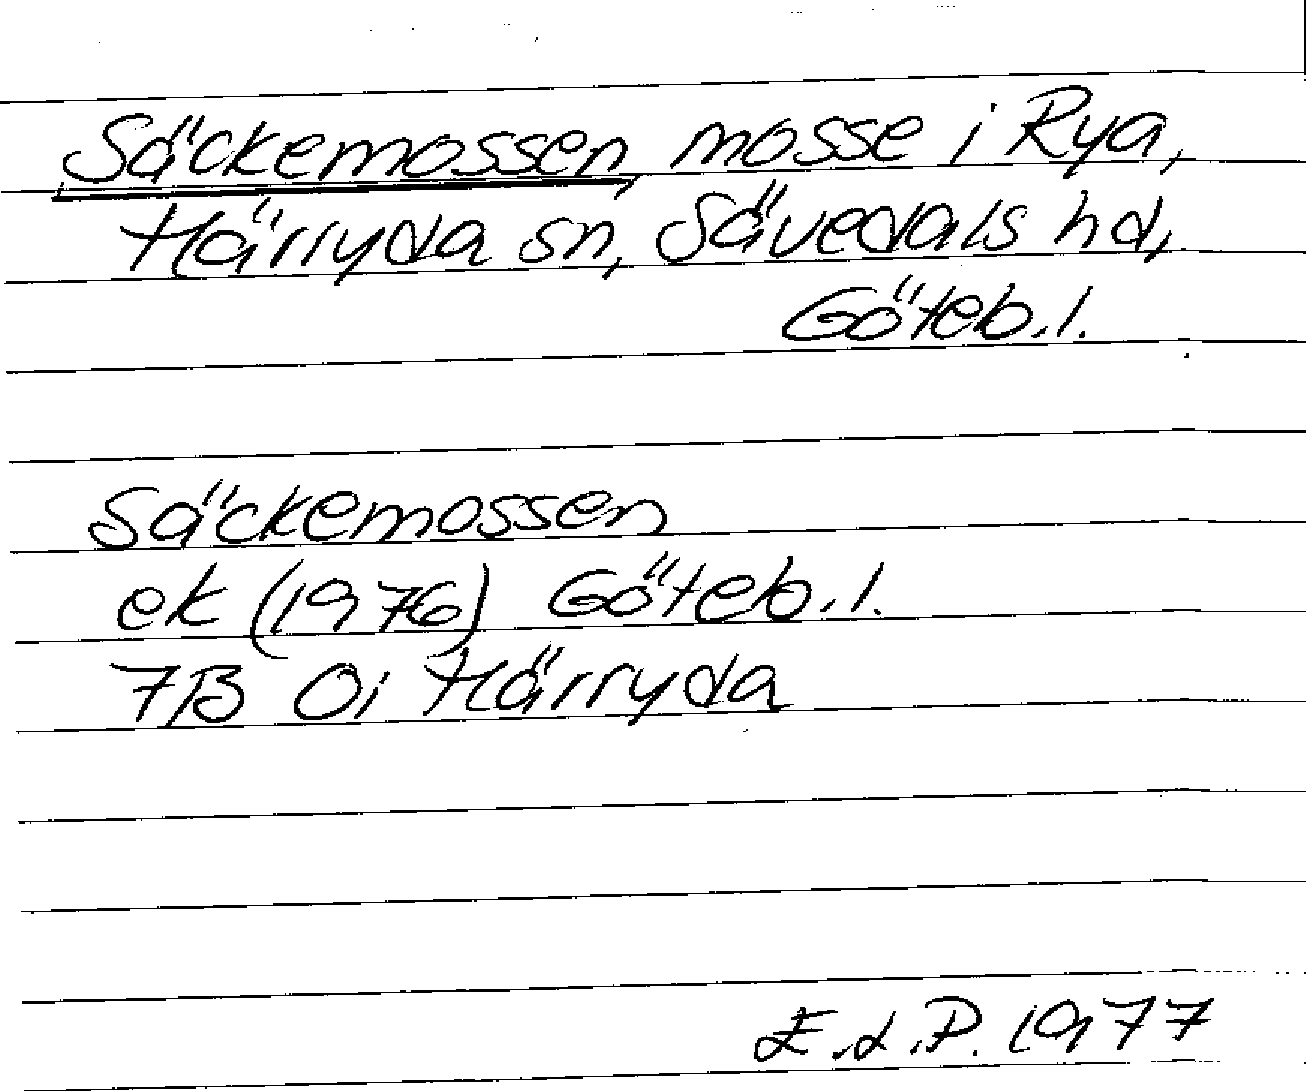 Säckemossen, mosse i Rya,
Härryda sn, Sävedals hd,
Göteb.l.
Säckemossen
ek (1976) Göteb.l.
7B 0i Härryda
E.L.P. 1977